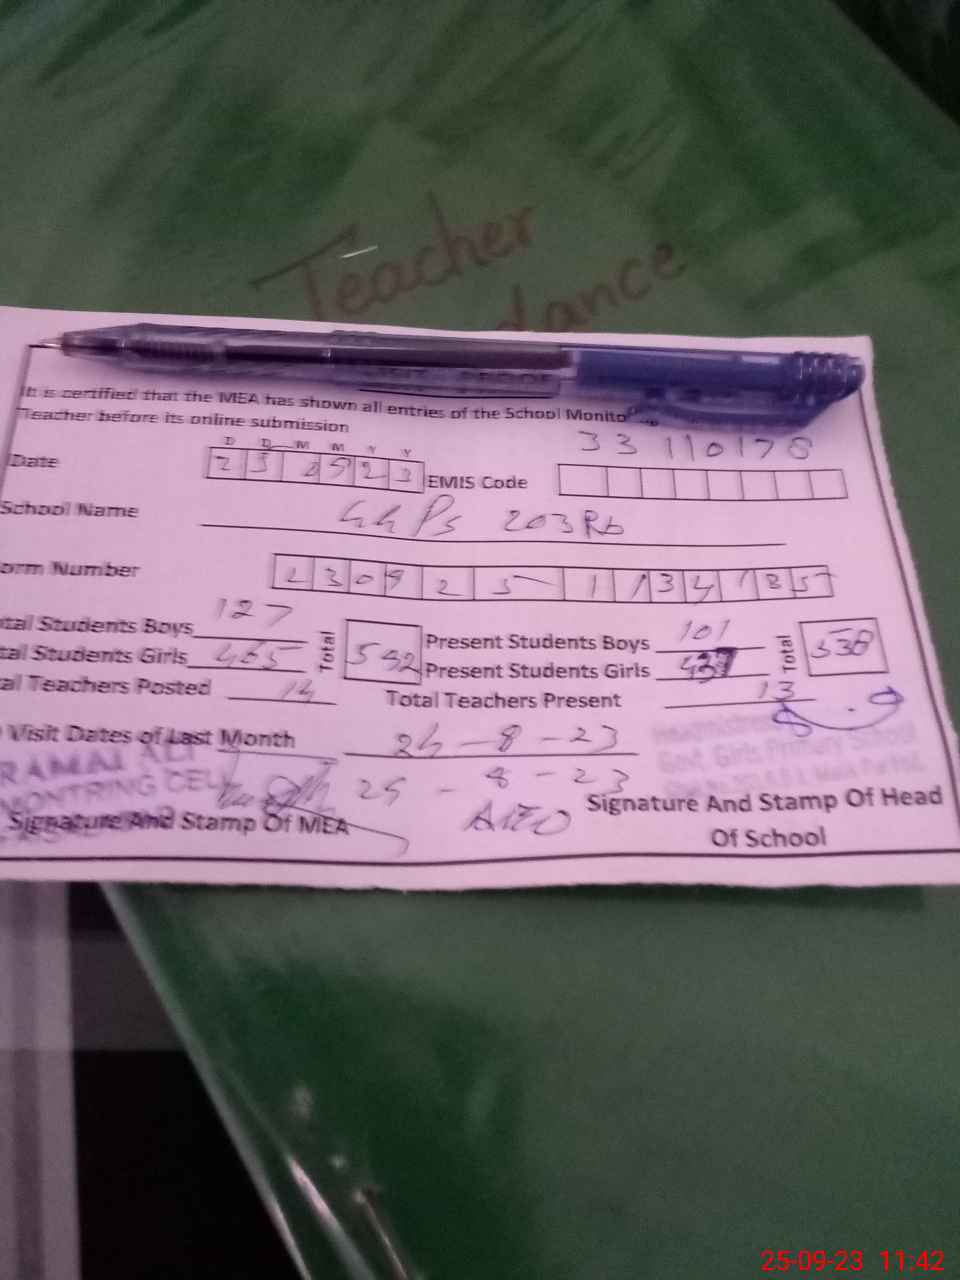 Teacher
dance
It is certified that the MEA has shown all entries of the School Monito
Teacher before its online submission
D D M M Y Y
Date 2 5 0 9 2 3 EMIS Code 33110178
School Name GGPS 203 Rb
orm Number 2 3 0 9 2 5 - 1 1 3 4 1 8 5
tal Students Boys 127 Total 592 Present Students Boys 101 Total 538
tal Students Girls 465 Present Students Girls 437
al Teachers Posted 14 Total Teachers Present 13
Visit Dates of Last Month 24-8-23
25-8-23
AEO
Govt. Girls Primary School
Signature And Stamp Of MEA
Signature And Stamp Of Head
Of School
25-09-23 11:42